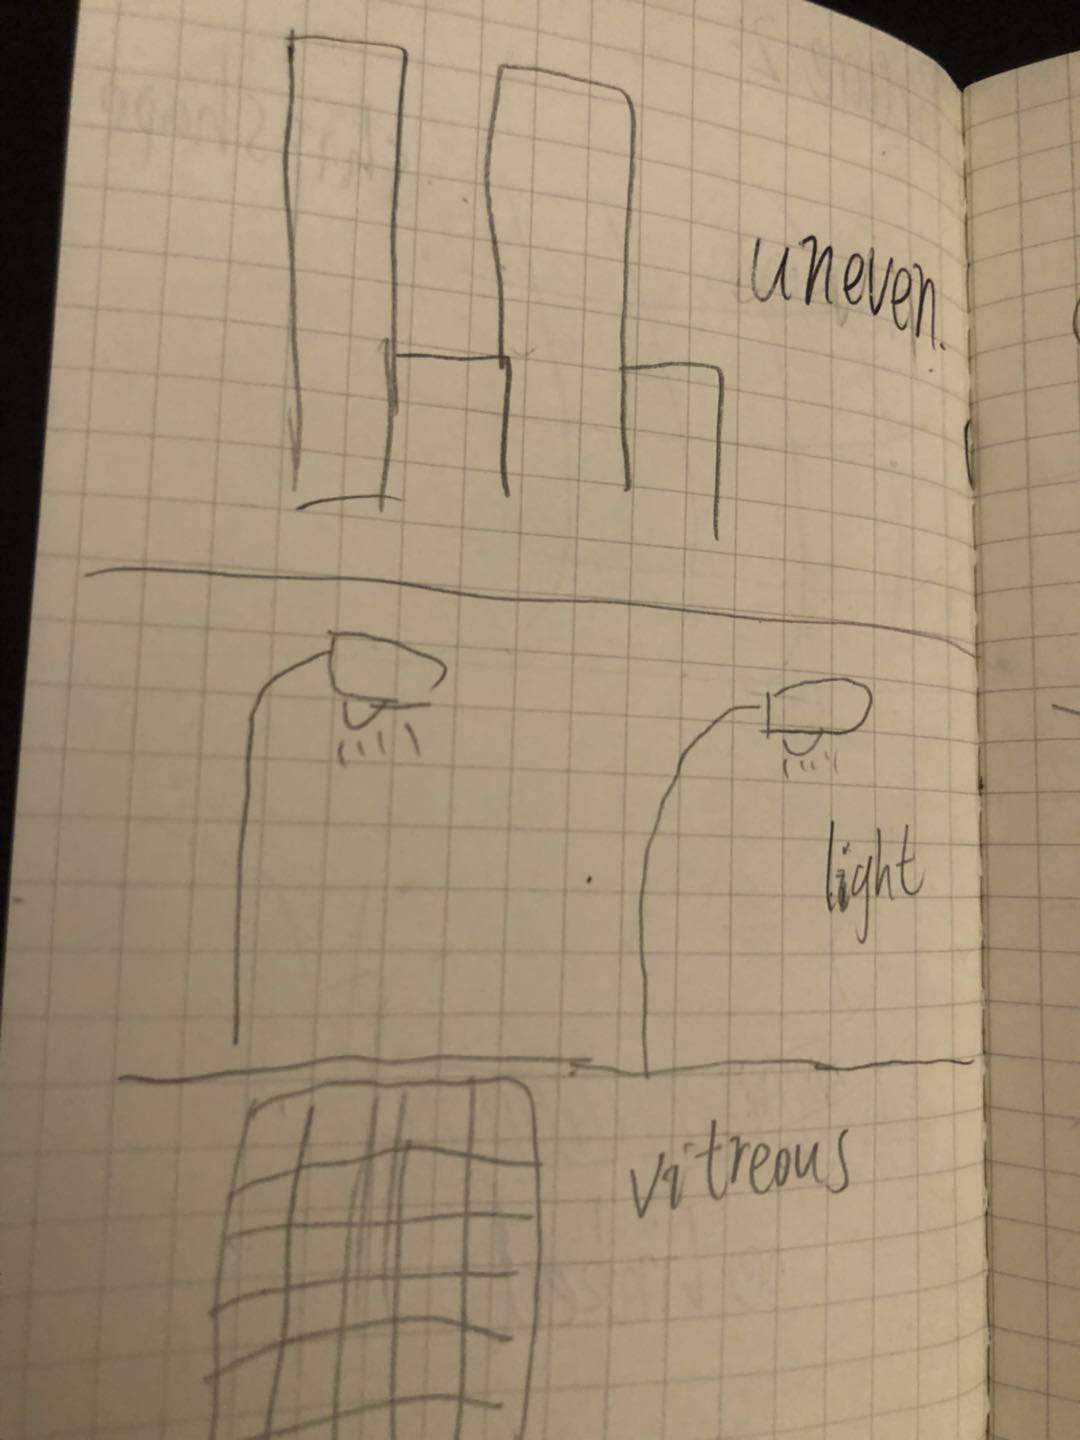 uneven.
light
vitreous